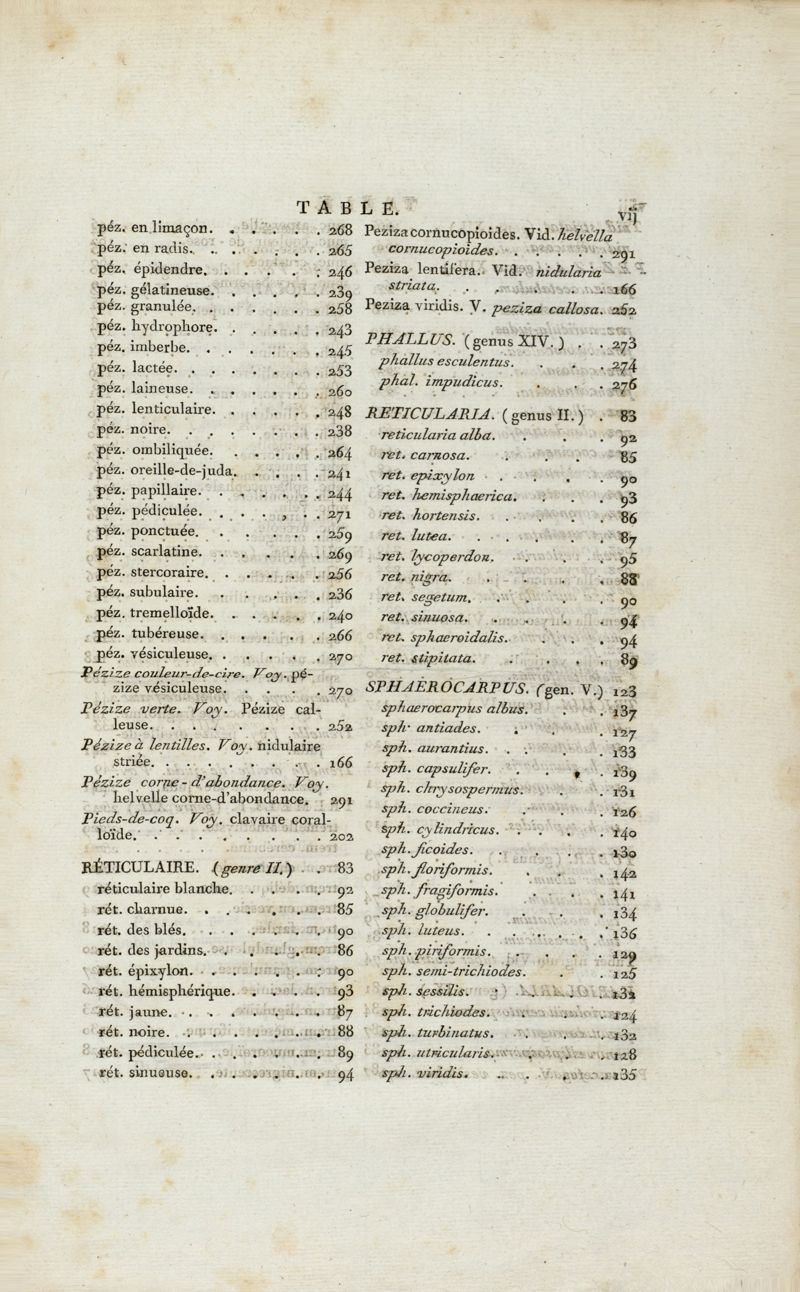 TABLE.
vij
péz. en limaçon. . . . . . 268
péz. en radis. . . . . . . 265
péz. épidendre. . . . . . 246
péz. gélatineuse. . . . . . 239
péz. granulée. . . . . . . 258
péz. hydrophore. . . . . . 243
péz. imberbe. . . . . . . 245
péz. lactée. . . . . . . . 253
péz. laineuse. . . . . . . 260
péz. lenticulaire. . . . . . 248
péz. noire. . . . . . . . 238
péz. ombiliquée. . . . . . 264
péz. oreille-de-juda. . . . . 241
péz. papillaire. . . . . . . 244
péz. pédiculée. . . . . , . . 271
péz. ponctuée. . . . . . . 259
péz. scarlatine. . . . . . . 269
péz. stercoraire. . . . . . . 256
péz. subulaire. . . . . . . 236
péz. tremelloïde. . . . . . 240
péz. tubéreuse. . . . . . . 266
péz. vésiculeuse. . . . . . 270
Pézize couleur-de-cire. Voy. pé-
zize vésiculeuse. . . . . . 270
Pézize verte. Voy. Pézize cal-
leuse. . . . . . . . . 252
Pézize à lentilles. Voy. nidulaire
striée. . . . . . . . . 166
Pézize corne-d'abondance. Voy.
helvelle corne-d'abondance. 291
Pieds-de-coq. Voy. clavaire coral-
loïde. . . . . . . . . . 202
RÉTICULAIRE. (genre II.) . . 83
réticulaire blanche. . . . . 92
rét. charnue. . . . . . . 85
rét. des blés. . . . . . . . 90
rét. des jardins. . . . . . . 86
rét. épixylon. . . . . . . 90
rét. hémisphérique. . . . . 93
rét. jaune. . . . . . . . 87
rét. noire. . . . . . . . 88
rét. pédiculée. . . . . . . 89
rét. sinueuse. . . . . . . 94
Peziza cornucopioides. Vid. helvella
cornucopioides. . . . . . 291
Peziza lentifera. Vid. nidularia
striata. . . . . . . 166
Peziza viridis. V. peziza callosa. 252
PHALLUS. (genus XIV.) . . 273
phallus esculentus. . . . 274
phal. impudicus. . . . 276
RETICULARIA. (genus II.) . 83
reticularia alba. . . . 92
ret. carnosa. . . . 85
ret. epixylon . . . . 90
ret. hemisphaerica. . . . 93
ret. hortensis. . . . . 86
ret. lutea. . . . . . 87
ret. lycoperdon. . . . . 95
ret. nigra. . . . . 88
ret. segetum. . . . . 90
ret. sinuosa. . . . . 94
ret. sphaeroidalis. . . . 94
ret. stipitata. . . . . 89
SPHAEROCARPUS. (gen. V.) 123
sphaerocarpus albus. . . 137
sph. antiades. . . . 127
sph. aurantius. . . . . 133
sph. capsulifer. . . . . 139
sph. chrysospermus. . . 131
sph. coccineus. . . . 126
sph. cylindricus. . . . . 140
sph. ficoides. . . . . 130
sph. floriformis. . . . 142
sph. fragiformis. . . . 141
sph. globulifer. . . . 134
sph. luteus. . . . . . . 136
sph. piriformis. . . . . 129
sph. semi-trichiodes. . . 125
sph. sessilis. . . . . . 132
sph. trichiodes. . . . . 124
sph. turbinatus. . . . . 132
sph. utricularis. . . . . 128
sph. viridis. . . . . . 135